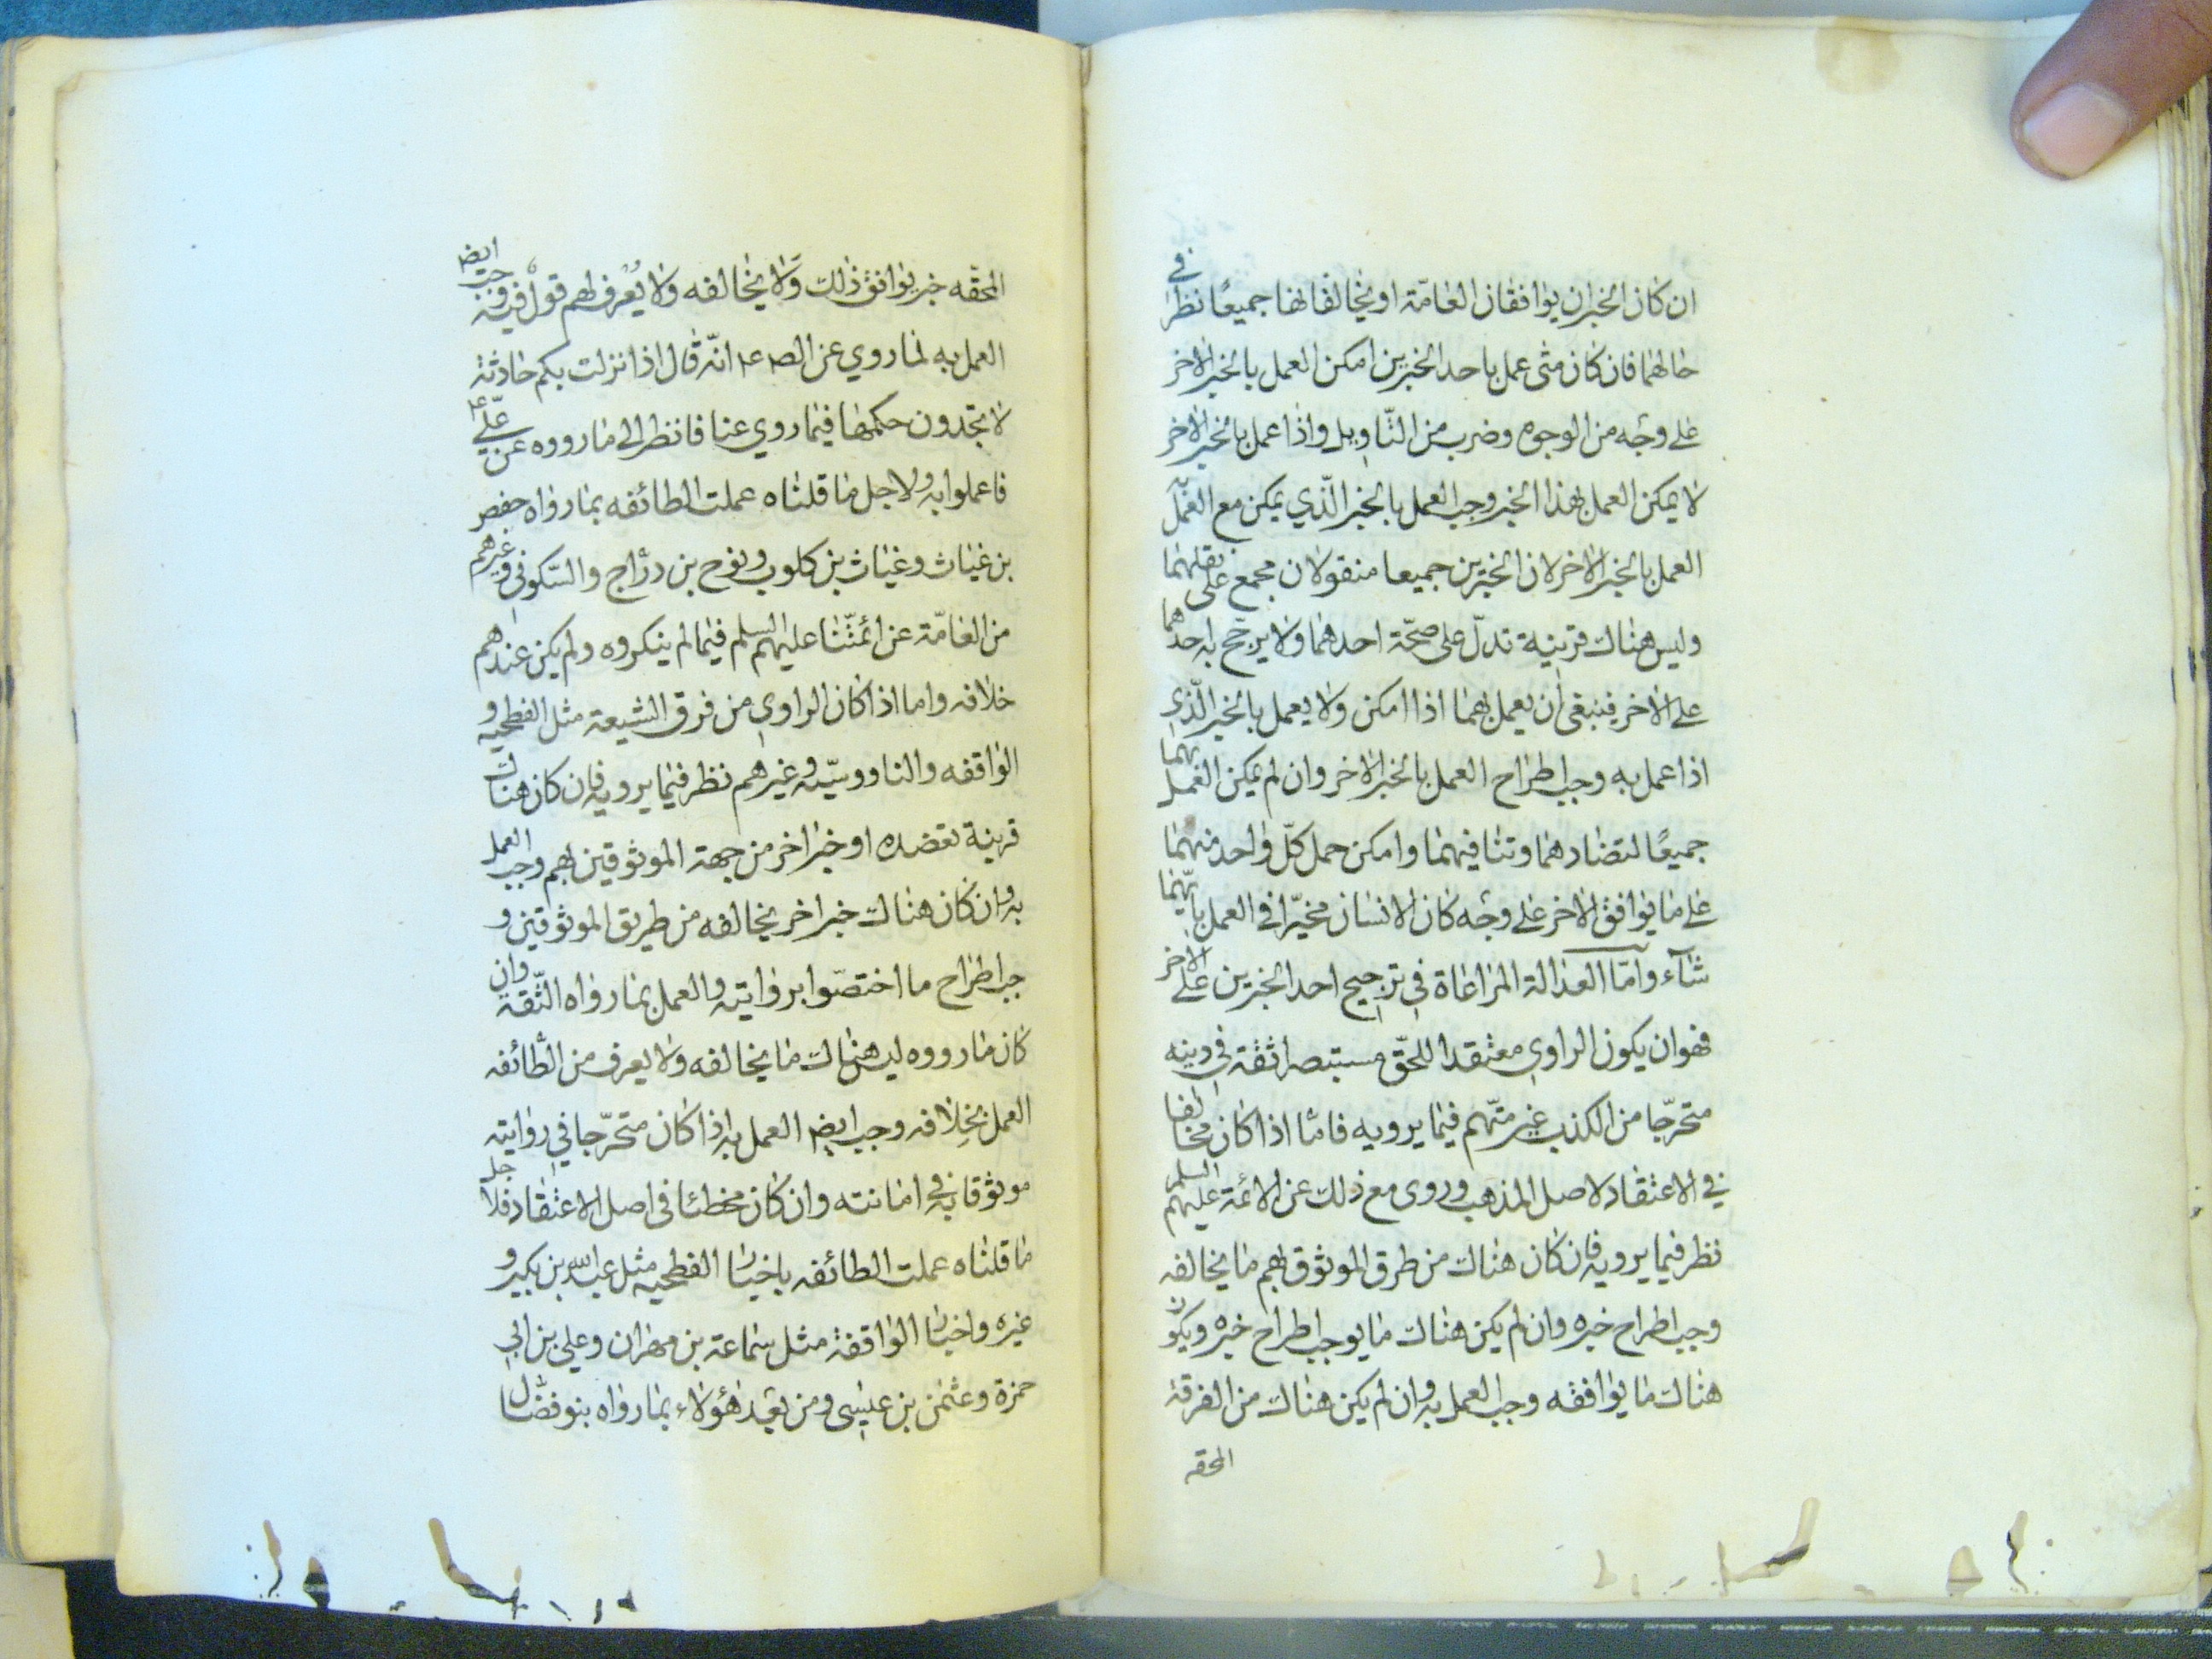 ان كان الخبران يوافقان العامّة او يخالفانها جميعًا نظر في
حالهما فان كان متى عمل باحد الخبرين امكن العمل بالخبر الاخر
على وجه من الوجوه وضرب من التّاويل واذا عمل بالخبر الاخر
لا يمكن العمل بهذا الخبر وجب العمل بالخبر الّذي يمكن مع العمل به
العمل بالخبر الاخر لان الخبرين جميعا منقولان مجمع على نقلهما
وليس هناك قرينة تدلّ على صحّة احدهما ولا يرجّح به احدهما
على الاخر فينبغي ان يعمل بهما اذا امكن ولا يعمل بالخبر الّذي
اذا عمل به وجب اطراح العمل بالخبر الاخر وان لم يمكن العمل بهما
جميعًا لتضادهما وتنافيهما وامكن حمل كلّ واحد منهما
على ما يوافق الاخر على وجه كان الانسان مخيّرا في العمل بايّهما
شآء وامّا العدالة المراعاة في ترجيح احد الخبرين على الاخر
فهو ان يكون الراوي معتقدا للحقّ مستبصرا ثقة في دينه
متحرّجا من الكذب غير متّهم فيما يرويه فامّا اذا كان مخالفا
في الاعتقاد لاصل المذهب وروى مع ذلك عن الائمة عليهم السلم
نظر فيما يرويه فان كان هناك من طرق الموثوق بهم ما يخالفه
وجب اطراح خبره وان لم يكن هناك ما يوجب اطراح خبره ويكون
هناك ما يوافقه وجب العمل به وان لم يكن هناك من الفرقة
المحقه
المحقّه خبر يوافق ذلك ولا يخالفه ولا يُعرف لهم قول فيه وجب ايضا
العمل به لما روي عن الص ع انّه قال اذا نزلت بكم حادثة
لا تجدون حكمها فيما روي عنا فانظر الى ما رووه عن علّي ع
فاعملوا به ولاجل ما قلناه عملت الطائفه بما رواه حفص
بن غياث وغياث بن كلوب ونوح بن درّاج والسّكوني وغيرهم
من العامّة عن ائمّتنا عليهم السلم فيما لم ينكروه ولم يكن عندهم
خلافه واما اذا كان الراوي من فرق الشيعة مثل الفطحيه و
الواقفه والناووسيّه وغيرهم نظر فيما يرويه فان كان هناك
قرينة تعضده او خبر اخر من جهة الموثوقين بهم وجب العمل
به وان كان هناك خبر اخر يخالفه من طريق الموثوقين و
جب اطراح ما اختصّوا بروايته والعمل بما رواه الثّقة وان
كان ما رووه ليس هناك ما يخالفه ولا يعرف من الطّائفه
العمل بخلافه وجب ايضا العمل به اذا كان متحرّجا في روايته
موثوقا به في امانته وان كان مخطئا في اصل الاعتقاد فلاجل
ما قلناه عملت الطائفه باخبار الفطحيه مثل عبد الله بن بكير و
غيره واخبار الواقفة مثل سماعة بن مهران وعلي بن ابي
حمزة وعثمن بن عيسى ومن بعد هؤلاء بما رواه بنو فضّال